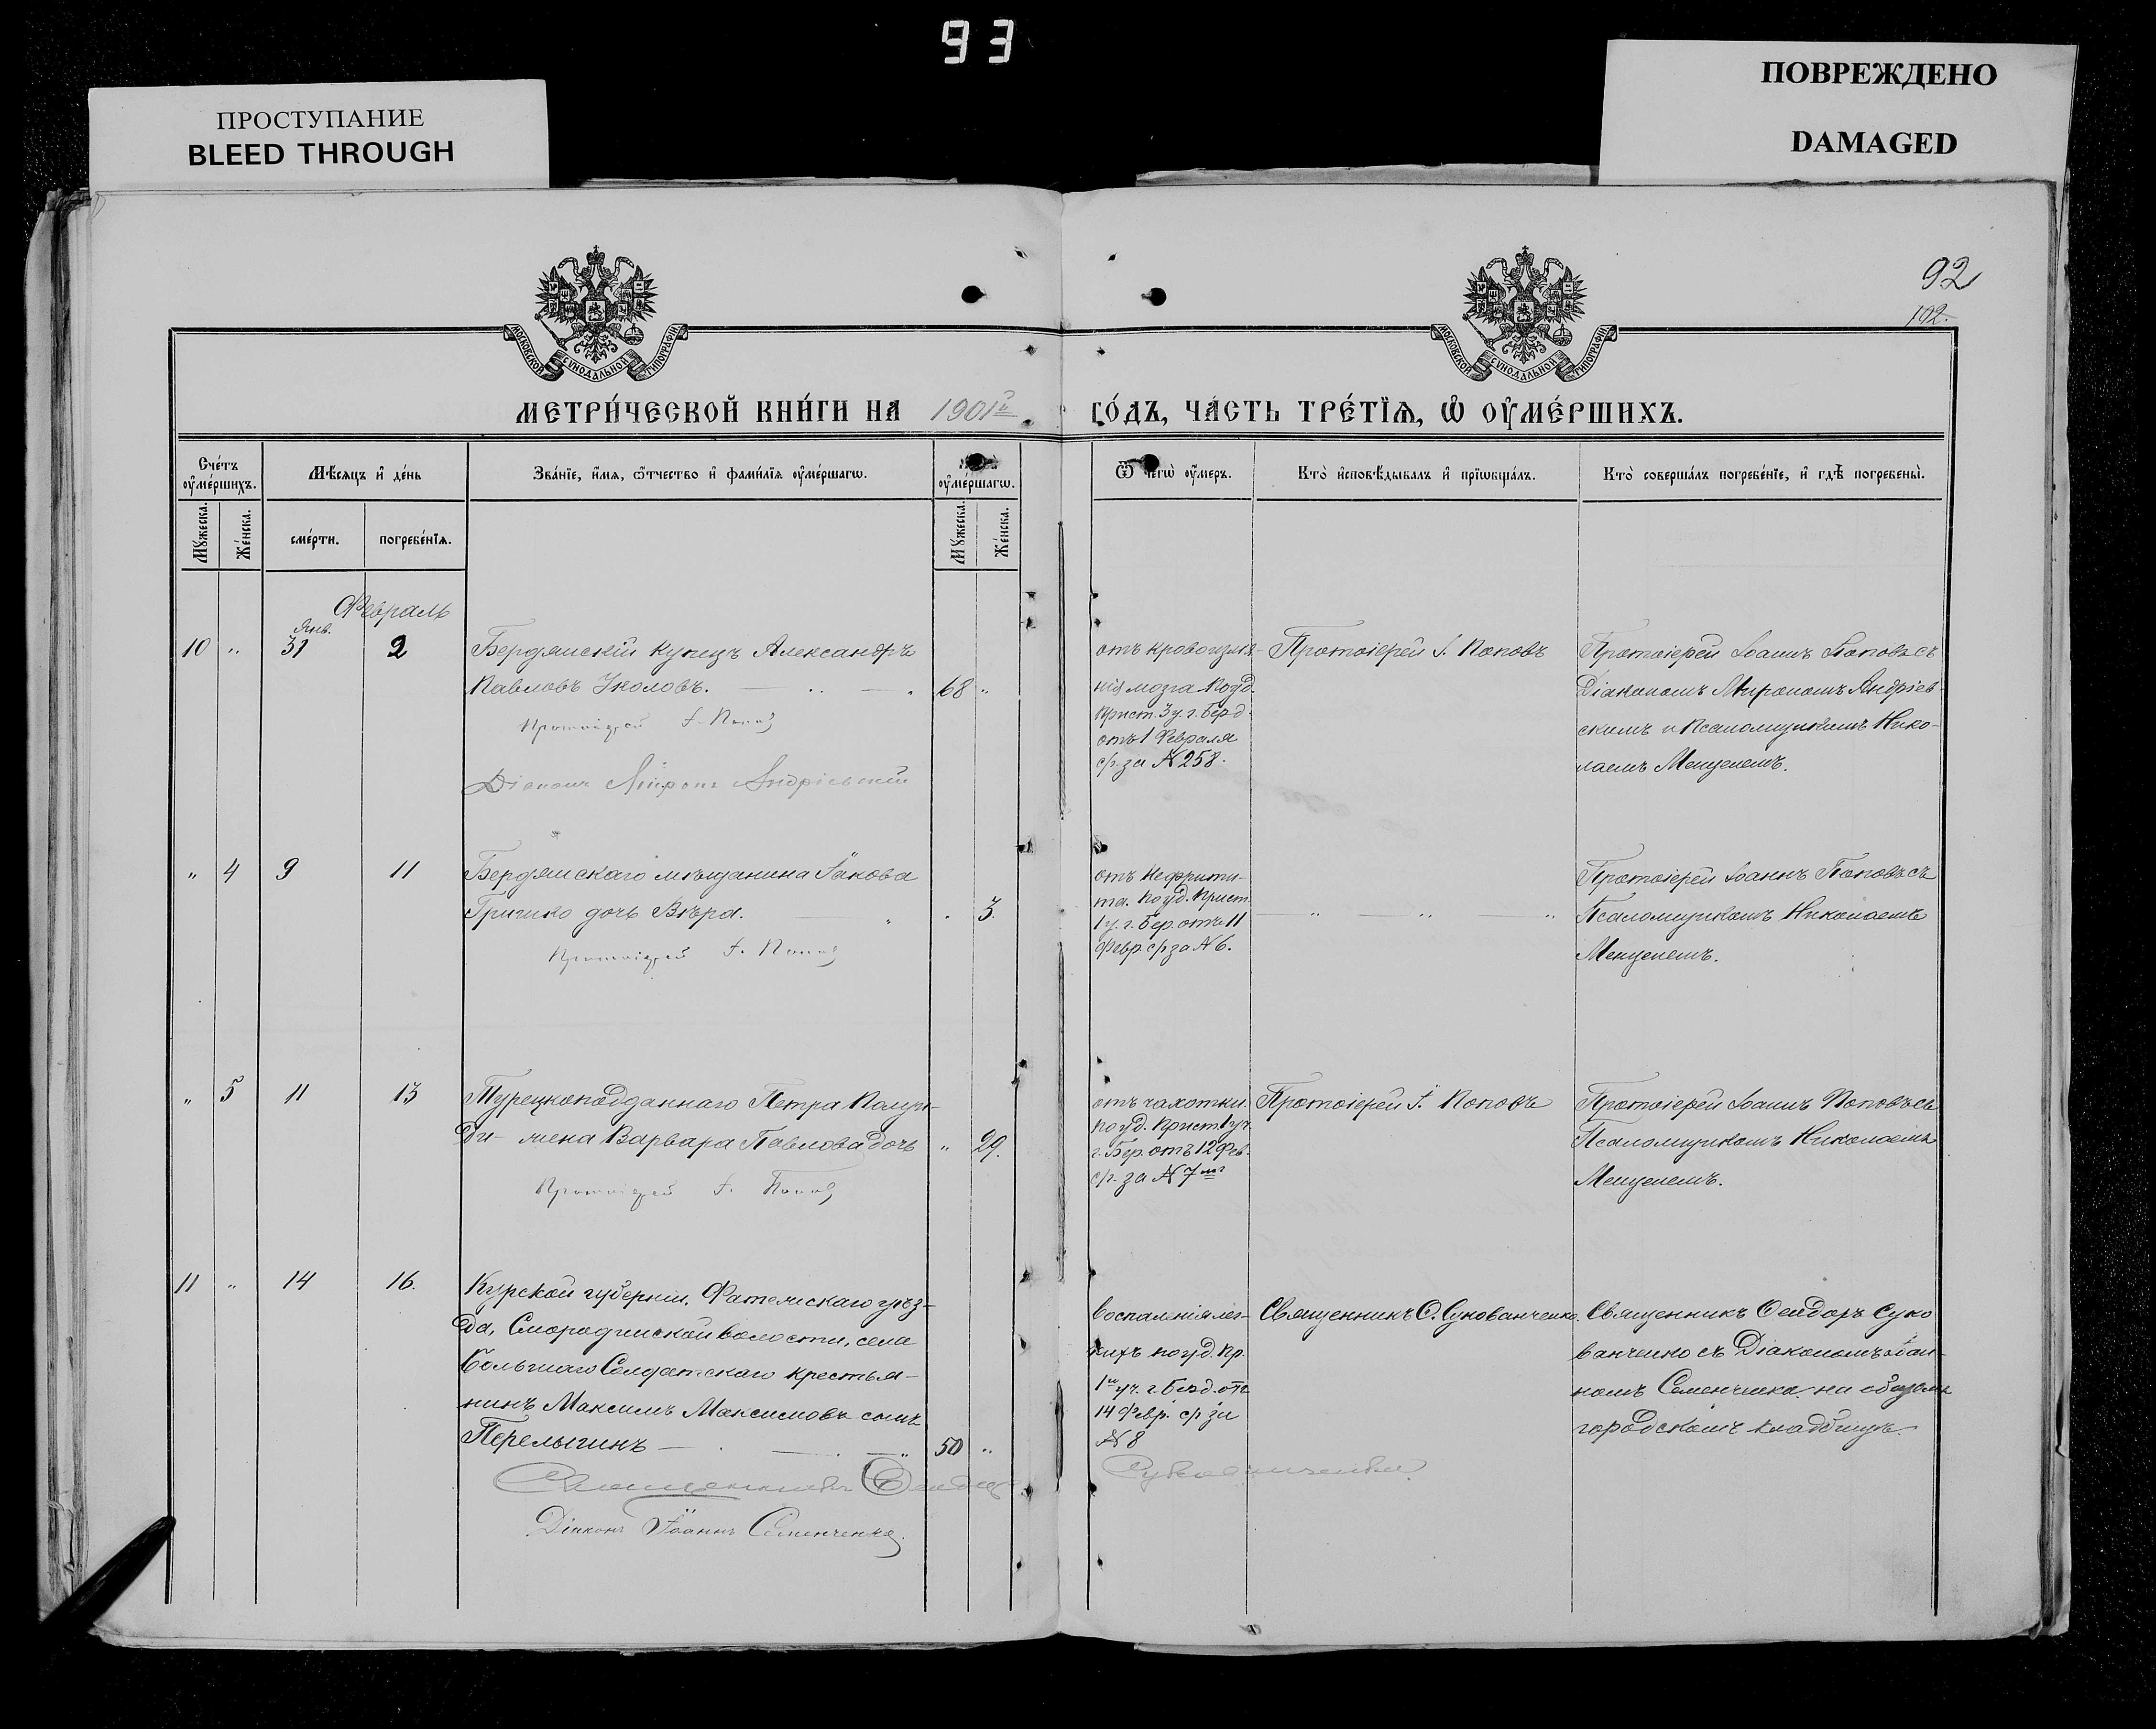 93
ПРОСТУПАНИЕ
BLEED THROUGH
ПОВРЕЖДЕНО
DAMAGED
92
192.
МОСКОВСКОЙ СѴНОДАЛЬНОЙ ТИПОГРАФІИ
МОСКОВСКОЙ СѴНОДАЛЬНОЙ ТИПОГРАФІИ
МЕТРИ́ЧЕСКОЙ КНИ́ГИ НА 1901й ГО́ДЪ, ЧА́СТЬ ТРЕ́ТЇѦ, Ѡ҆ ОУ҆МЕ́РШИХЪ.
Сче́тъ оу҆ме́ршихъ.
Мѣ́сяцъ и҆ де́нь
Зва́нїе, и҆́мѧ, ѻ҆́тчество и҆ фами́лїѧ оу҆ме́ршагѡ.
оу҆ме́ршагѡ.
Ѿ чегѡ̀ оу҆́меръ.
Кто̀ и҆сповѣ́дывалъ и҆ прїѡбща́лъ.
Кто̀ соверша́лъ погребе́нїе, и҆ гдѣ̀ погребены̀.
Мꙋ́жеска.
Же́нска.
сме́рти.
погребе́нїѧ.
Мꙋ́жеска.
Же́нска.
Февраль
Янв.
10 „ 31 2
Бердянскій купецъ Александръ
Павловъ Уколовъ. 68 „
Протоіерей І. Поповъ
Діаконъ Миронъ Андріевскій
отъ кровоизлія-
нія мозга по уд.
Прист. 3 у. г. Берд.
отъ 1 Февраля
с/г. за № 258.
Протоіерей І. Поповъ
Протоіерей Іоаннъ Поповъ съ
Діакономъ Мирономъ Андріев-
скимъ и Псаломщикомъ Нико-
лаемъ Менценемъ.
„ 4 9 11
Бердянскаго мѣщанина Іакова
Гришко дочь Вѣра. 3.
Протоіерей І. Поповъ
отъ нефрити-
та. по уд. Прист.
1 у. г. Бер. отъ 11
Февр. с/г за № 6.
Протоіерей Іоаннъ Поповъ съ
Псаломщикомъ Николаемъ
Менценемъ.
„ 5 11 13
Турецкоподданнаго Петра
жена Варвара Павлова дочь „ 29.
Протоіерей І. Поповъ
отъ чахотки.
по уд. Прист. 1 уч.
г. Бер. отъ 12 Фев.
с/г. за № 7мъ
Протоіерей І. Поповъ
Протоіерей Іоаннъ Поповъ съ
Псаломщикомъ Николаемъ
Менценемъ.
11 „ 14 16.
Курской губерніи, Фатежскаго уѣз-
да, Смородинской волости, села
Большаго Солдатскаго крестья-
нинъ Максимъ Максимовъ сынъ
Перелыгинъ 50 „
Священникъ Ѳеодоръ Сукованченко
Діаконъ Іоаннъ Семенченко.
воспаленія лег-
кихъ по уд. Пр.
1й уч. г. Берд. отъ
14 Февр. с/г за
№ 8
Священникъ Ѳ. Сукованченко.
Священникъ Ѳеодоръ Суко
ванченко съ Діакономъ Іоан-
номъ Семенченко на общемъ
городскомъ кладбищѣ.